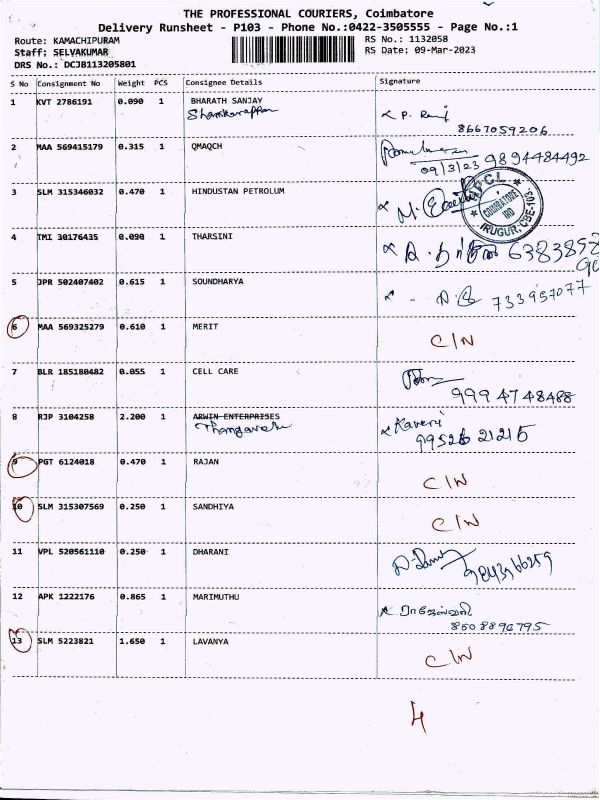 THE PROFESSIONAL COURIERS, Coimbatore
Delivery Runsheet - P103 - Phone No.:0422-3505555 - Page No.:1
Route: KAMACHIPURAM RS No.: 1132058
Staff: SELVAKUMAR RS Date: 09-Mar-2023
DRS No.: DCJB113205801
S No Consignment No Weight PCS Consignee Details Signature
1 KVT 2786191 0.090 1 BHARATH SANJAY
8667059206
2 MAA 569415179 0.315 1 QMAQCH
09/3/23 9894484492
3 SLM 315346032 0.470 1 HINDUSTAN PETROLUM
COIMBATORE
IRD
IRUGUR, CBE-103.
4 TMI 30176435 0.090 1 THARSINI
5 JPR 502407402 0.615 1 SOUNDHARYA
733957077
6 MAA 569325279 0.610 1 MERIT C/N
7 BLR 185180482 0.055 1 CELL CARE
9994748488
8 RJP 3104258 2.200 1 ARWIN ENTERPRISES Kaveri
9 PGT 6124018 0.470 1 RAJAN C/N
10 SLM 315307569 0.250 1 SANDHIYA C/N
11 VPL 520561110 0.250 1 DHARANI
12 APK 1222176 0.865 1 MARIMUTHU
8508896795
13 SLM 5223821 1.650 1 LAVANYA C/N
4